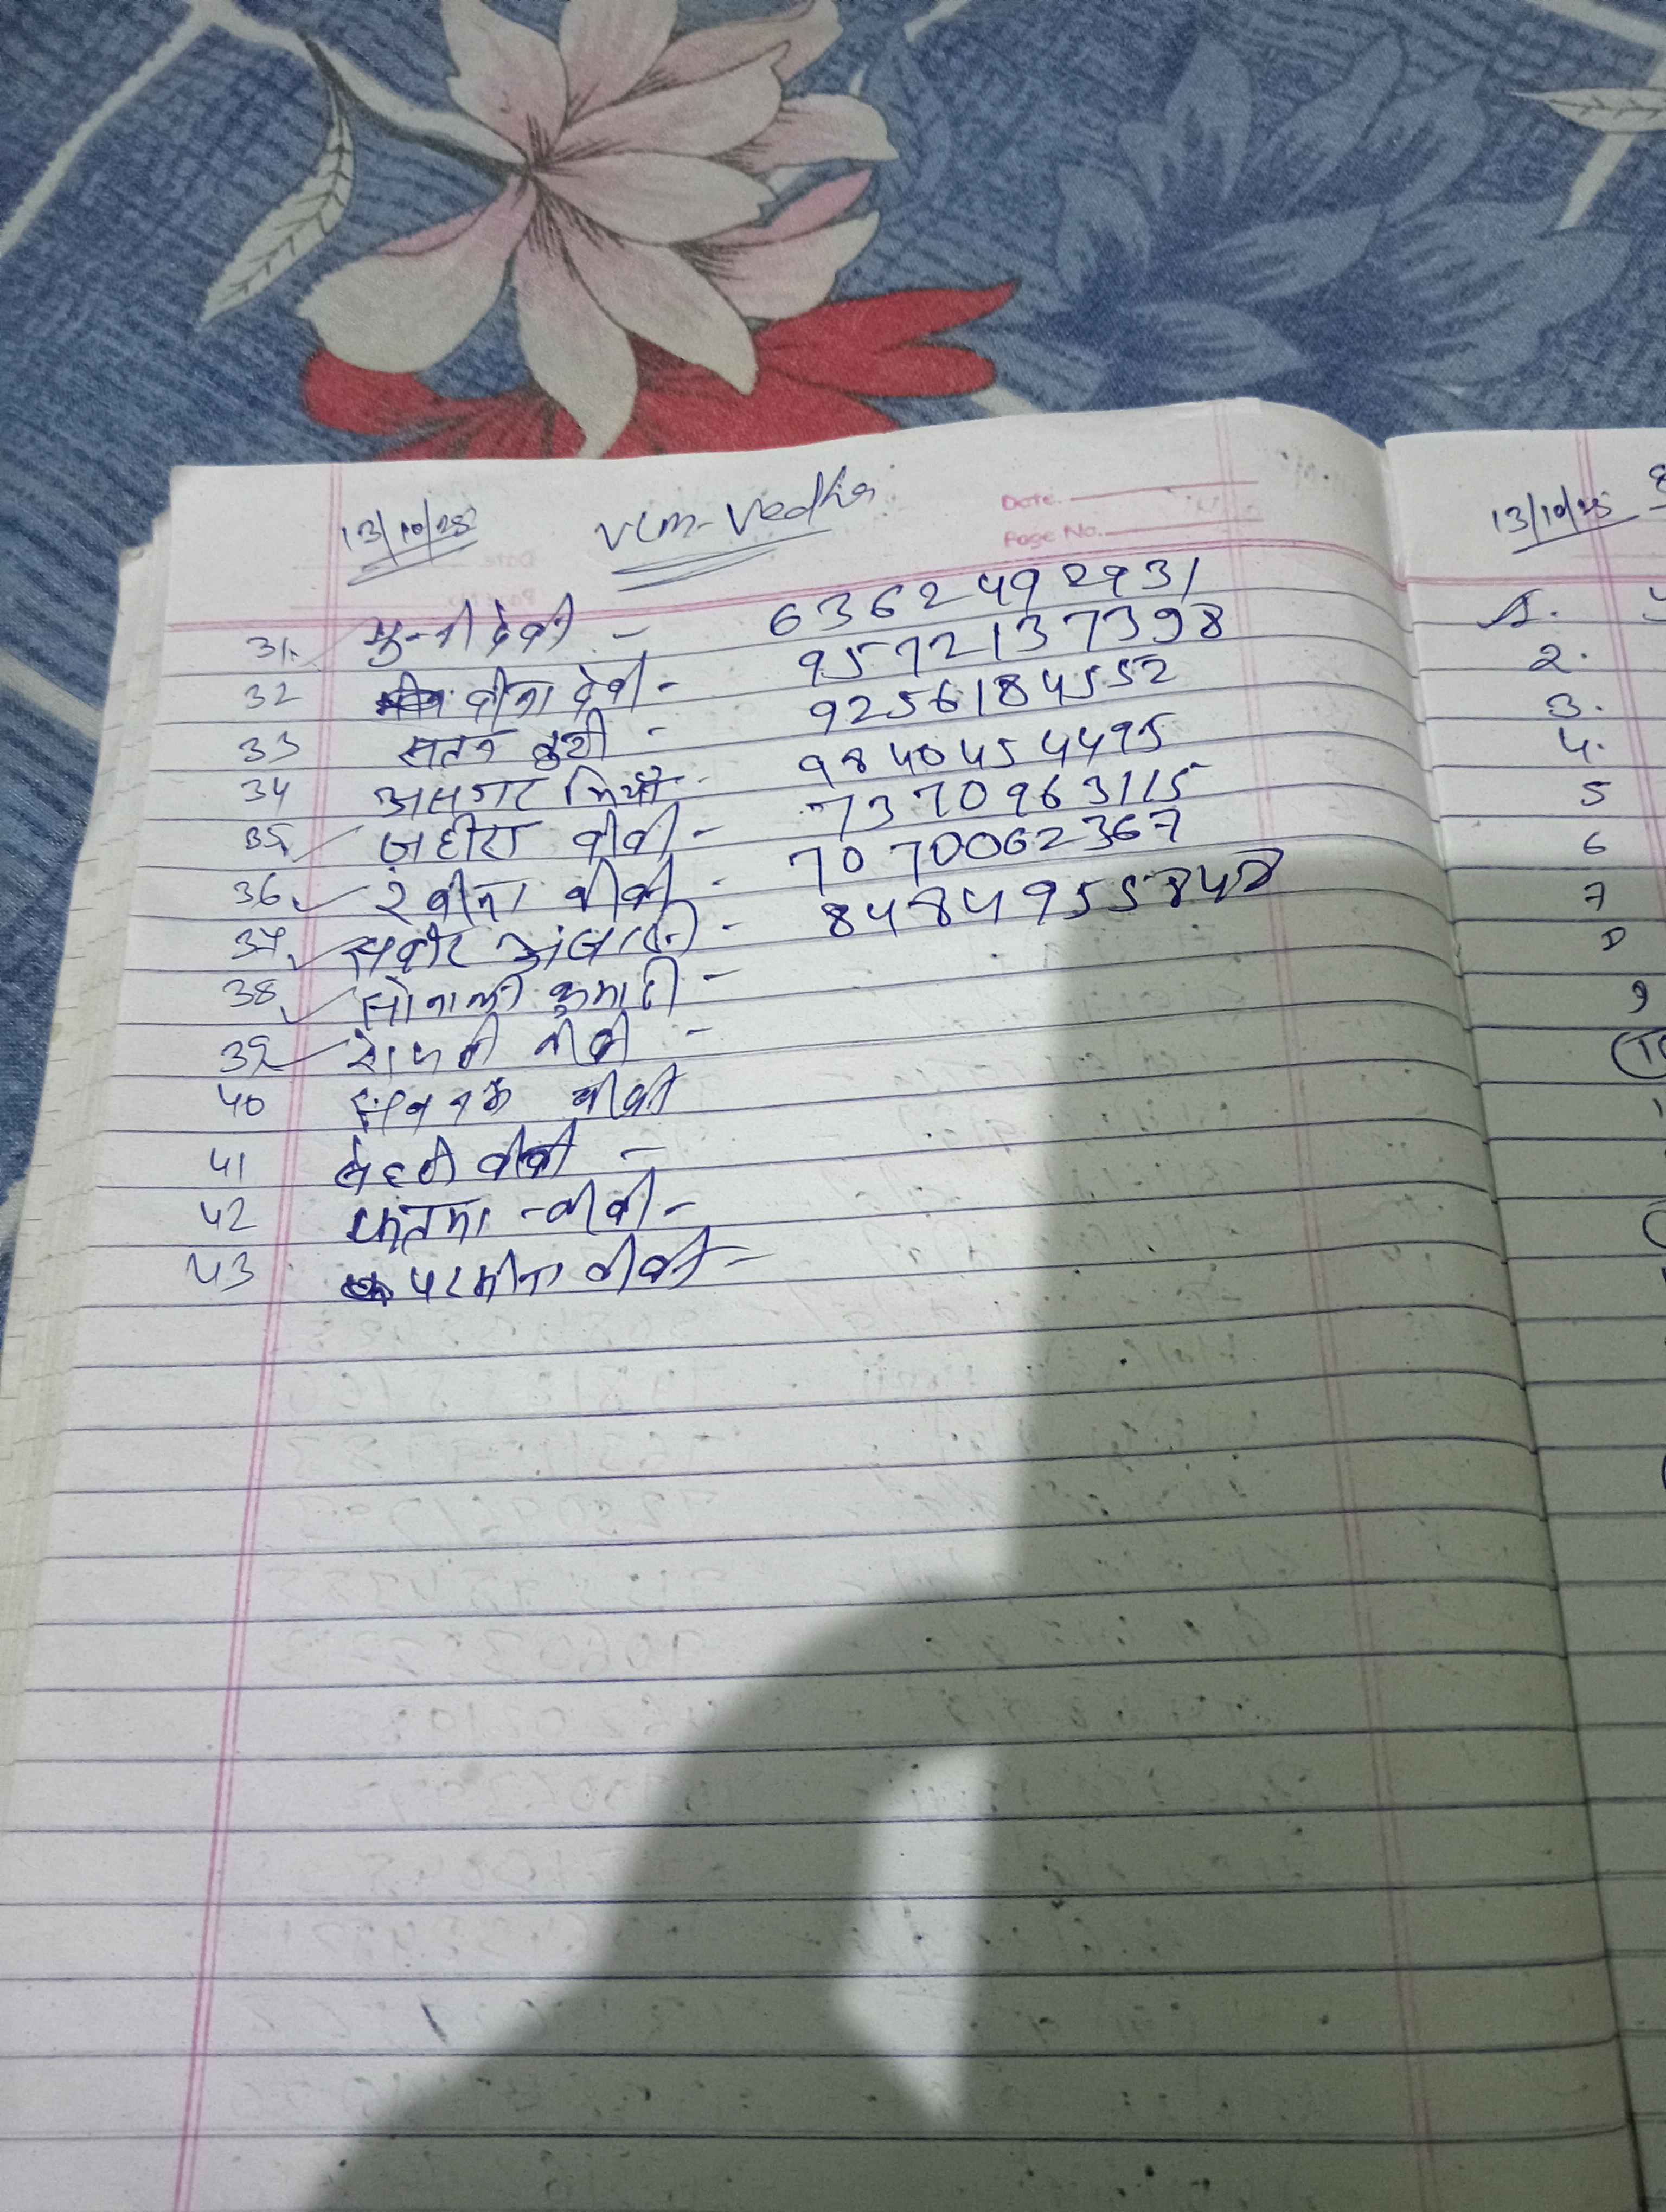 13/10/25 VLM-Vedha
Date.
Page No.
31. मुन्नी देवी - 6362492931
32 वीना देवी - 9572137398
33 - 9256184552
34 असगर मियाँ - 9840454495
35 जहीरा बीबी - 7370963115
36 रुबीना बीबी - 7070062367
37 अंजली - 8484955848
38 सोनाली कुमारी -
39 बीबी -
40 बीबी
41 बीबी -
42 फातमा - बीबी -
43 परमीना बीबी -
13/10/25
2.
3.
4.
5
6
7
9